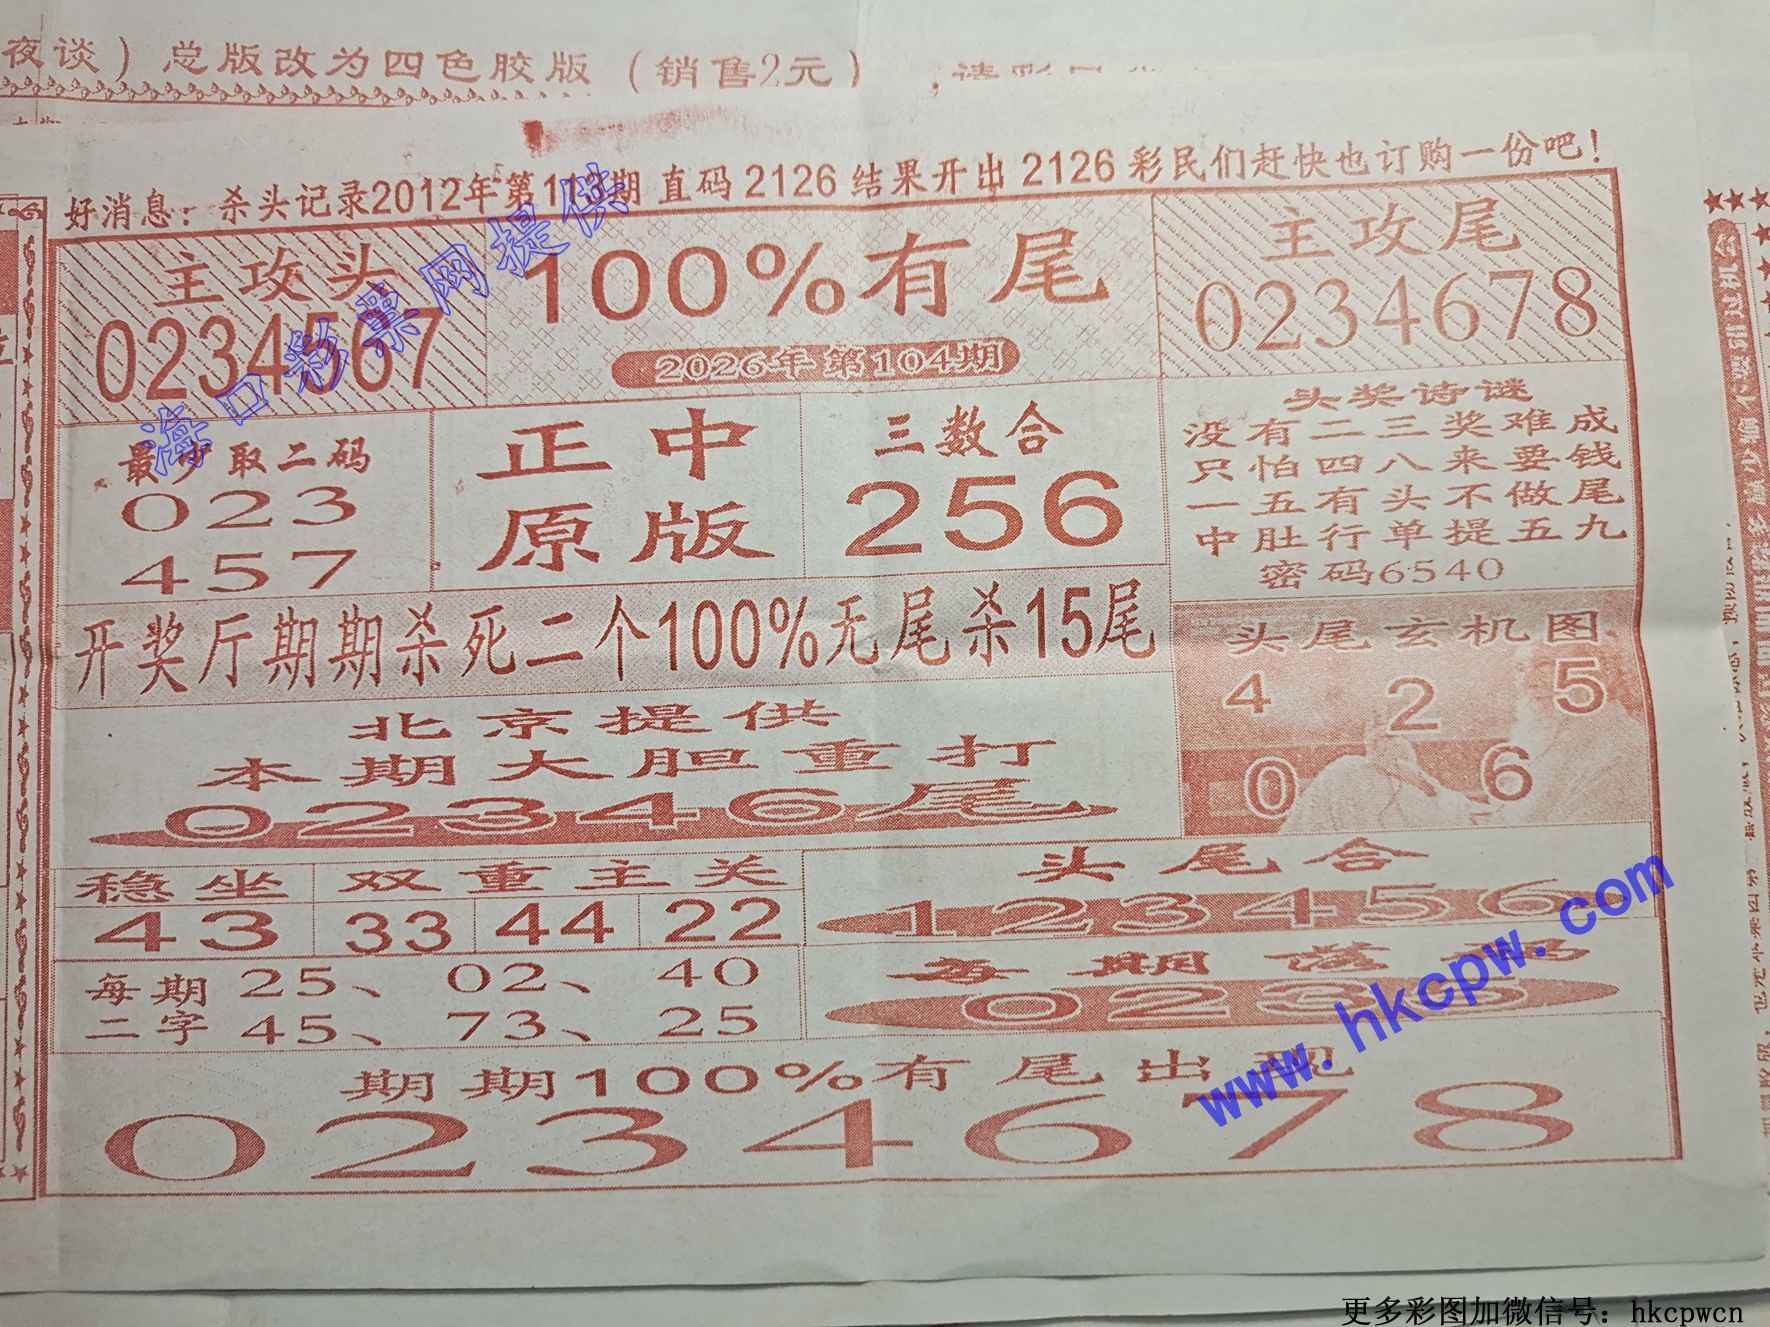 夜谈）总版改为四色胶版（销售2元）
好消息：杀头记录2012年第113期 直码 2126 结果开出 2126 彩民们赶快也订购一份吧！
主攻头
0234567
100%有尾
2026年第104期
主攻尾
0234678
最少取二码
023
457
正中
原版
三数合
256
头奖诗谜
没有二三奖难成
只怕四八来要钱
一五有头不做尾
中肚行单提五九
密码6540
开奖厅期期杀死二个100%无尾杀15尾
头尾玄机图
4 2 5
0 6
北京提供
本期大胆重打
02346尾
稳坐
43
双重主关
33 44 22
头尾合
123456
每期
二字
25、 02、 40
45、 73、 25
每期
期期100%有尾出现
0234678
海口彩票网提供
www.hkcpw.com
更多彩图加微信号：hkcpwcn